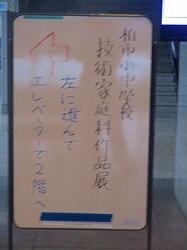 柏市小中学校
技術家庭科作品展
左に進んで
エレベーターで2階へ